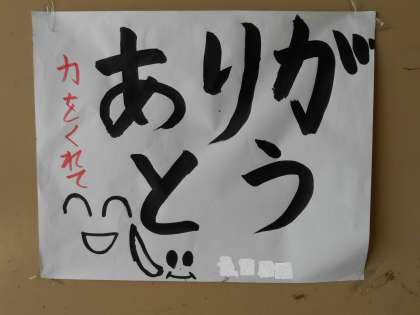 力をくれて
ありが
とう